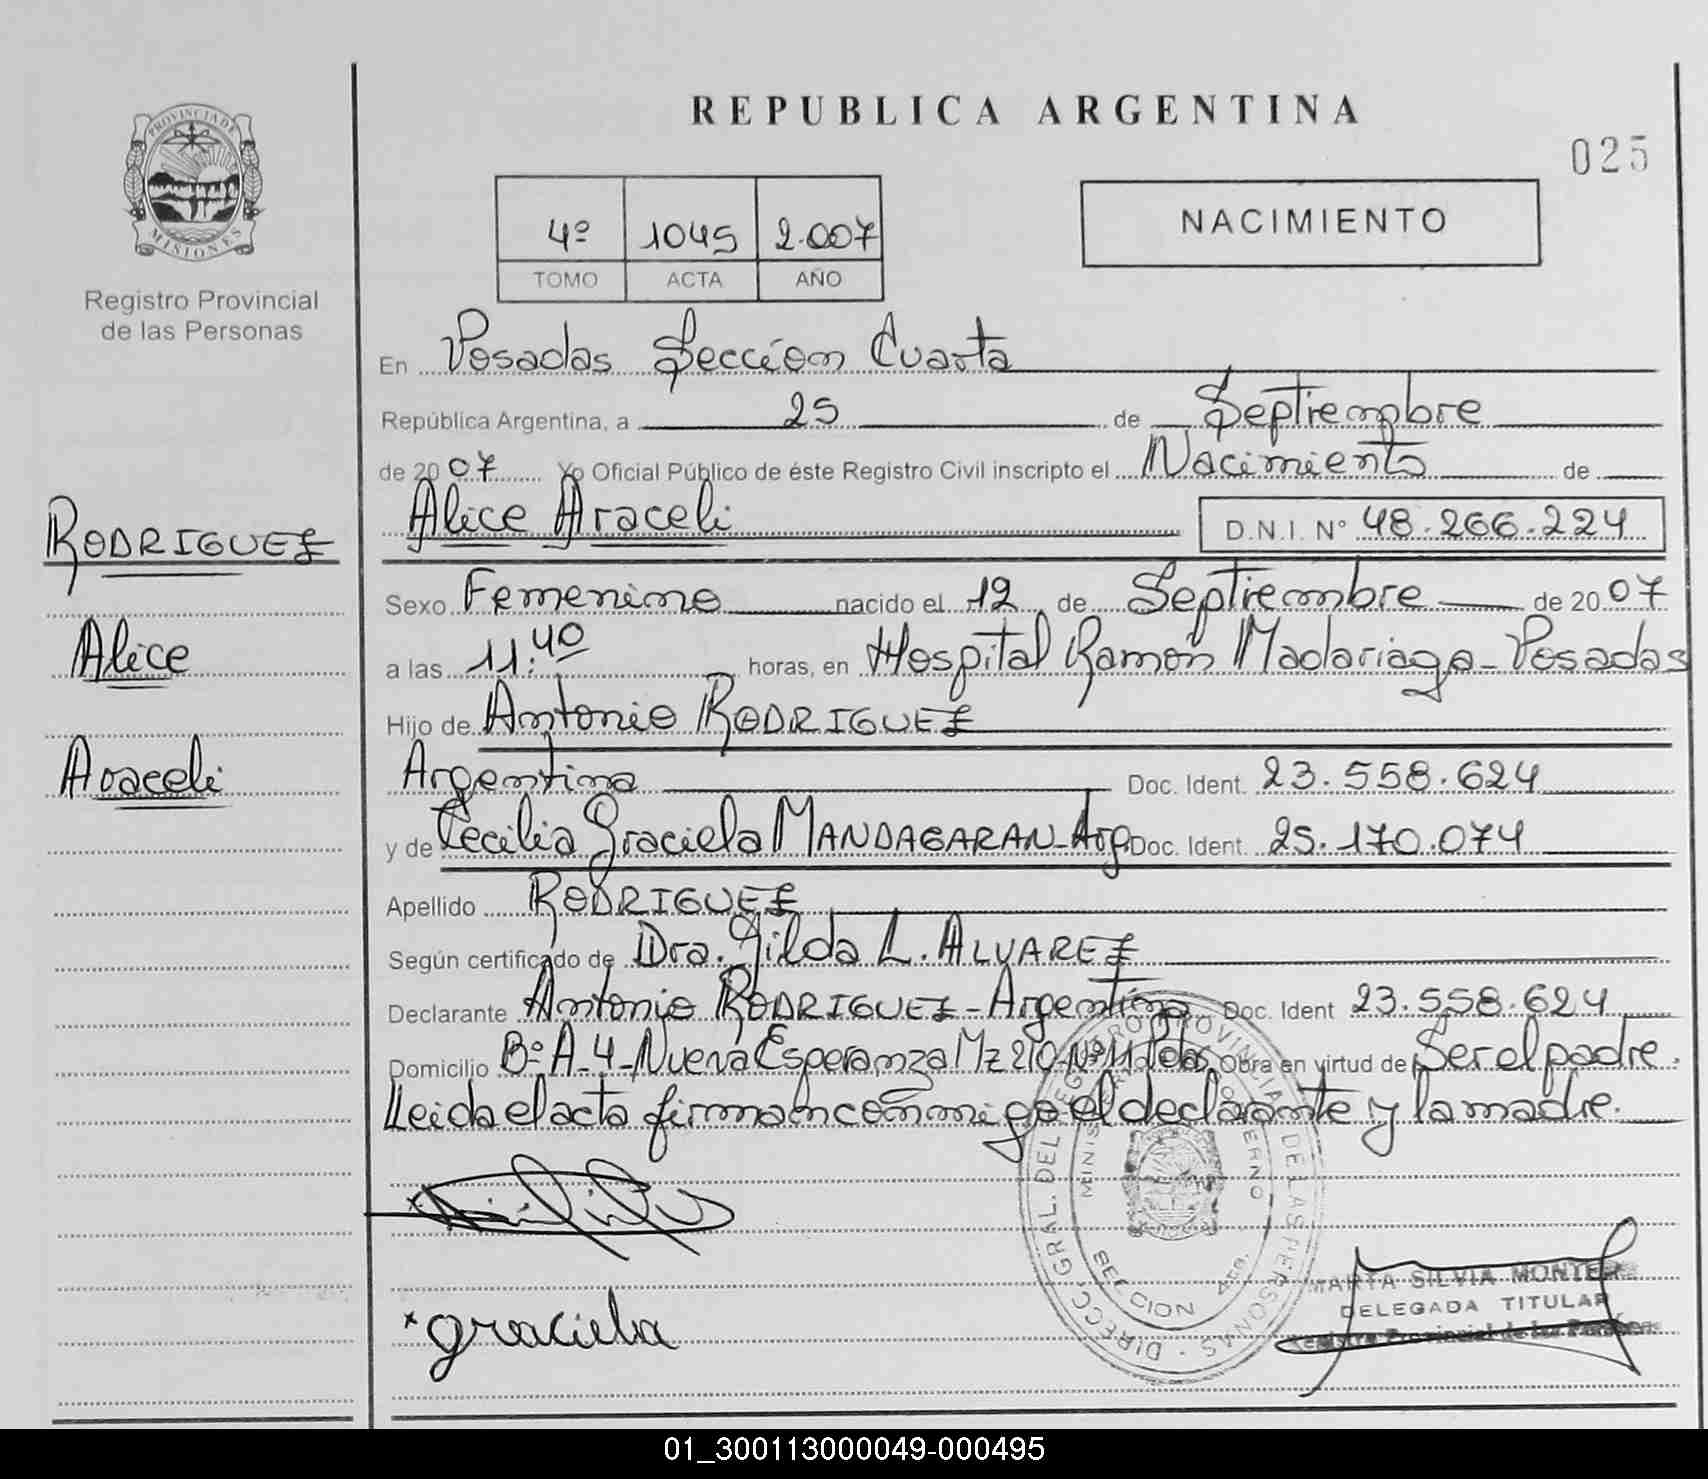 REPUBLICA ARGENTINA
025
PROVINCIA DE
MISIONES
Registro Provincial
de las Personas
4º 1045 2.007
TOMO ACTA AÑO
NACIMIENTO
En Posadas Sección Cuarta
República Argentina, a 25 de Septiembre
de 20 07 Yo Oficial Público de éste Registro Civil inscripto el Nacimiento de
Alice Araceli D.N.I. Nº 48.266.224
RODRIGUEZ
Alice
Araceli
Sexo Femenino nacido el 12 de Septiembre de 20 07
a las 11:40 horas, en Hospital Ramón Madariaga - Posadas
Hijo de Antonio RODRIGUEZ
Argentina Doc. Ident. 23.558.624
y de Cecilia Graciela MANDAGARAN - Arg. Doc. Ident. 25.170.074
Apellido RODRIGUEZ
Según certificado de Dra. Gilda L. ALVAREZ
Declarante Antonio RODRIGUEZ - Argentina Doc. Ident 23.558.624
Domicilio Bº A-4 - Nueva Esperanza Mz 210 Nº 11 Pdas Obra en virtud de Ser el padre.
Leida el acta firman conmigo el declarante y la madre.
DIRECC. GRAL. DEL REGISTRO PROVINCIAL DE LAS PERSONAS
SECCION 4ta.
graciela
MARTA SILVIA
DELEGADA TITULAR
Registro Provincial de las Personas
01_300113000049-000495